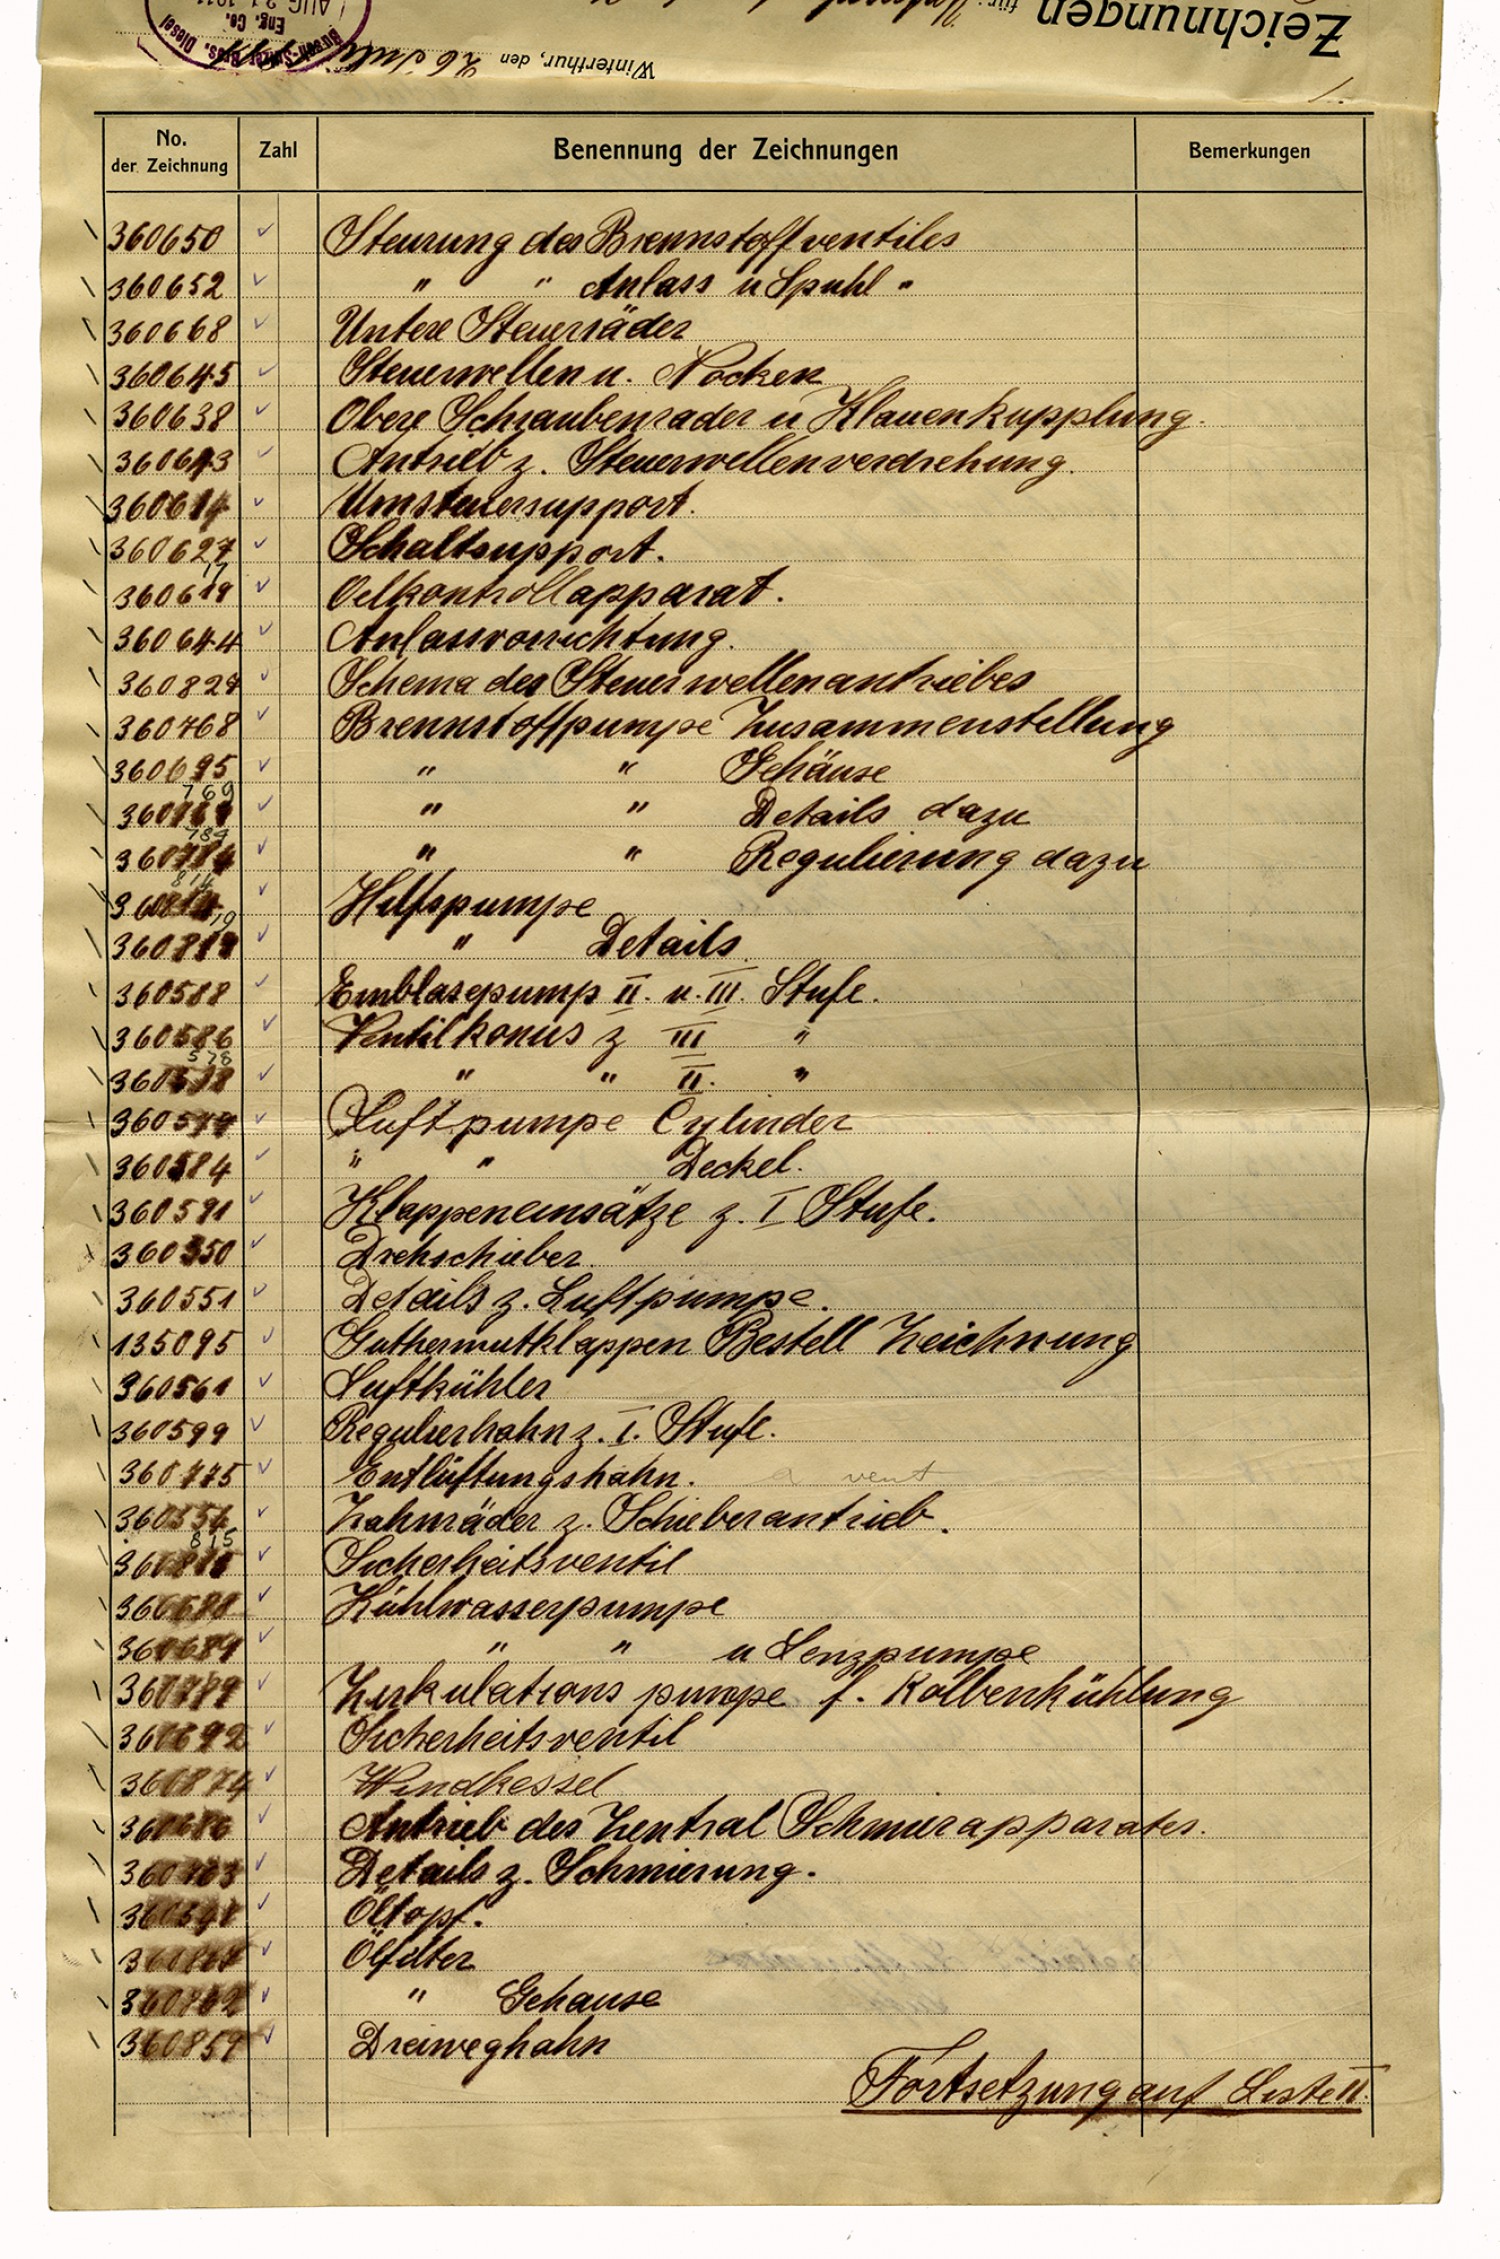 Zeichnungen für:
Winterthur, den 26 Juli
Busch-Sulzer Bros. Diesel
Eng. Co.
AUG 21 1911
1.
No. der Zeichnung Zahl Benennung der Zeichnungen Bemerkungen
360650 ✓ Steurung des Brennstoffventiles
360652 ✓ " " Anlass u Spuhl "
360668 ✓ Untere Steuerräder
360645 ✓ Steuerwellen u. Nocken
360638 ✓ Obere Schraubenrader u Klauenkupplung.
360643 ✓ Antrieb z. Steuerwellenverdrehung.
360614 ✓ Umsteuersupport.
360627 ✓ Schaltsupport.
360619 ✓ Oelkontrollapparat.
360644 ✓ Anlassvorrichtung.
360827 ✓ Schema des Steuerwellenantriebes
360768 ✓ Brennstoffpumpe Zusammenstellung
360695 ✓ " " Gehäuse
360769 769 ✓ " " Details dazu
360784 784 ✓ " " Regulierung dazu
360814 814 ✓ Hilfspumpe
360819 19 ✓ " Details
360588 ✓ Einblasepump II. u. III. Stufe.
360586 ✓ Ventilkonus z III "
360578 578 ✓ " " II. "
360577 ✓ Luftpumpe Cylinder
360584 ✓ " " Deckel.
360591 ✓ Klappeneinsätze z. I Stufe.
360550 ✓ Drehschieber.
360551 ✓ Details z. Luftpumpe.
135095 ✓ Guthermutklappen Bestell Zeichnung
360561 ✓ Luftkühler
360599 ✓ Regulierhahn z. I. Stufe.
360775 ✓ Entlüftungshahn. a vent
360554 ✓ Zahnräder z. Schieberantrieb.
360815 815 ✓ Sicherheitsventil
✓ Kühlwasserpumpe
360689 ✓ " " u Lenzpumpe
360789 ✓ Zirkulations pumpe f. Kolbenkühlung
360692 ✓ Sicherheitsventil
360874 ✓ Windkessel
360686 ✓ Antrieb des Zentral Schmierapparates.
360763 ✓ Details z. Schmierung.
✓ Öltopf.
✓ Ölfilter
360862 ✓ " Gehause
360859 ✓ Dreiweghahn
Fortsetzung auf Liste II.